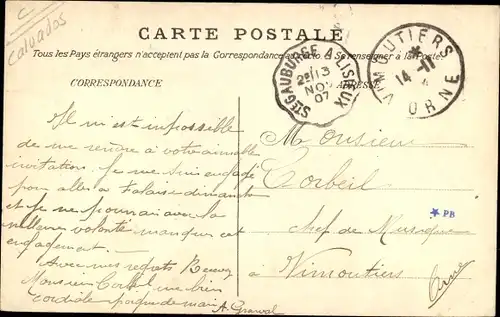 C
Calvados
CARTE POSTALE
Tous les Pays étrangers n'acceptent pas la Correspondance au recto. Se renseigner à la Poste.
CORRESPONDANCE
ADRESSE
STE GAUBURGE A LISIEUX
2E 13
NOV
07
VIMOUTIERS
14 -11
ORNE
Il m'est impossible
de me rendre à votre aimable
invitation. Je me suis engagé
pour aller à Falaise dimanche
et je ne pourrai avec la
meilleure volonté manquer cet
engagement.
Avec mes regrets Recevez
Monsieur Corbeil une bien
cordiale poignée de main A.
Monsieur
Corbeil
chef de Musique
à Vimoutiers
Orne
* PB